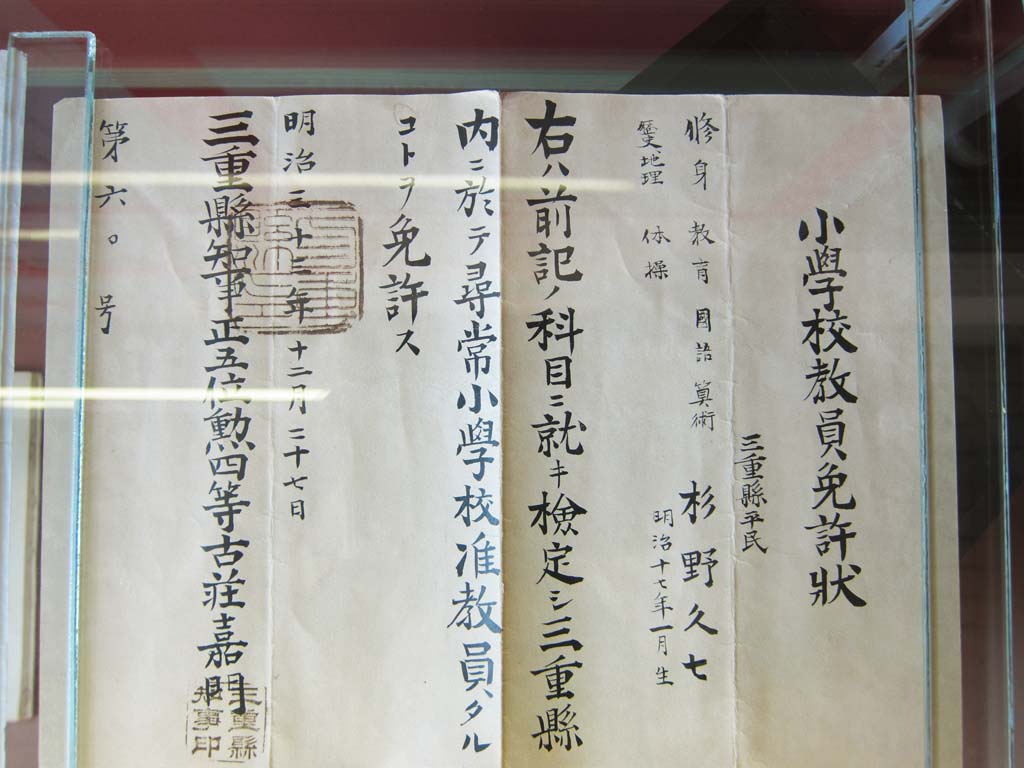 小學校教員免許狀
三重縣平民
杉野久七
明治十七年一月生
修身 教育 國語 算術
歷史 地理 体操
右ハ前記ノ科目ニ就キ檢定シ三重縣
內ニ於テ尋常小學校准教員タル
コトヲ免許ス
明治三十二年十二月二十七日
三重縣知事正五位勳四等古莊嘉門
三重縣
知事印
第六〇号